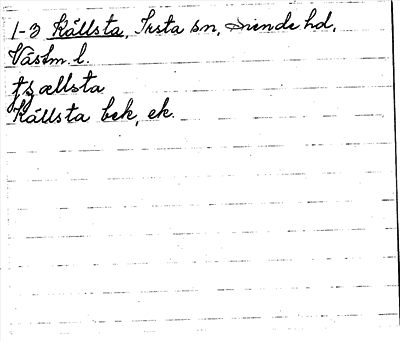 1-3 Källsta, Irsta sn, Siende hd,
Västm. l.
tʒællsta
Källsta bek, ek.